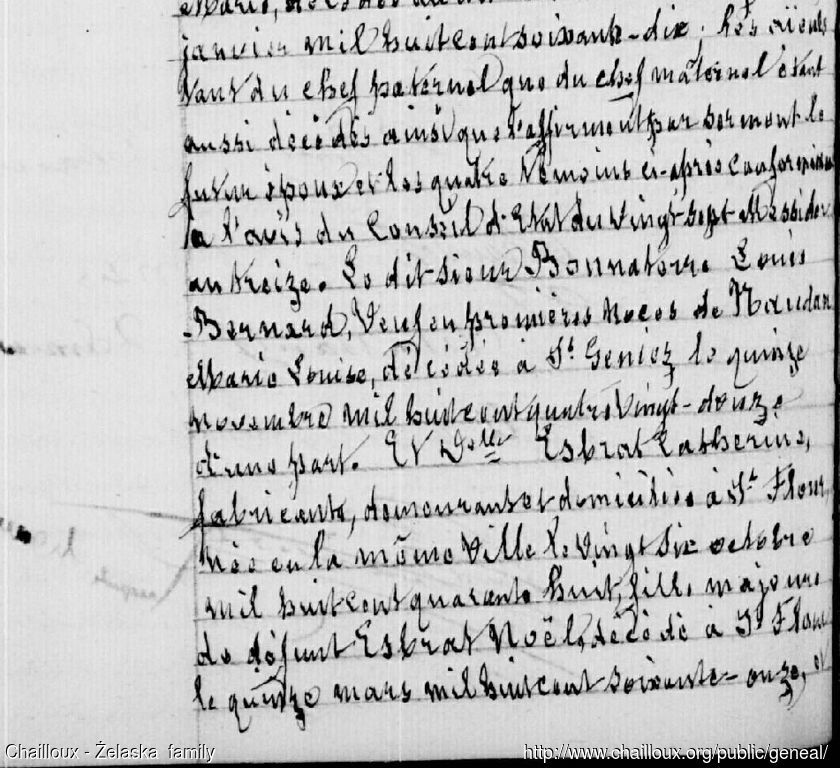 Marie, décédée au dit
janvier mil huit cent soixante-dix. Les aïeuls
tant du chef paternel que du chef maternel étant
aussi décédés ainsi que l'affirment par serment le
futur époux et les quatre témoins ci-après conformément
à l'avis du Conseil d'Etat du vingt sept Messidor
an treize. Le dit sieur Bonnaterre Louis
Bernard, Veuf en premières noces de Naudan
Marie Louise, décédée à St Geniez le quinze
novembre mil huit cent quatre vingt-douze
d'une part. Et Delle Esbrat Catherine,
fabricante, demeurant et domiciliée à St Flour,
née en la même Ville le vingt six octobre
mil huit cent quarante huit, fille majeure
de défunt Esbrat Noël, décédé à St Flour
le quinze mars mil huit cent soixante-onze, et
Chailloux - Żelaska family
http://www.chailloux.org/public/geneal/